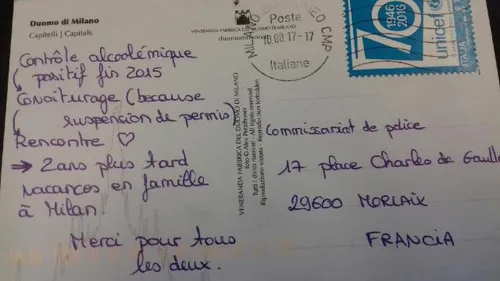 Duomo di Milano
Capitelli | Capitals
Contrôle alcoolémique
( positif fin 2015
Covoiturage (because
( suspension de permis)
Rencontre ♡
→ 2 ans plus tard
vacances en famille
à Milan.
Merci pour tous
les deux.
VENERANDA FABBRICA DEL DUOMO DI MILANO
VENERANDA FABBRICA DEL DUOMO DI MILANO
Tutti i diritti riservati - All rights reserved
Riproduzione vietata - Reproduction forbidden
MILANO
CMP
Poste
10.08.17-17
Italiane
70
1946
2016
unicef
Commissariat de police
17 place Charles de Gaulle
29600 MORLAIX
FRANCIA